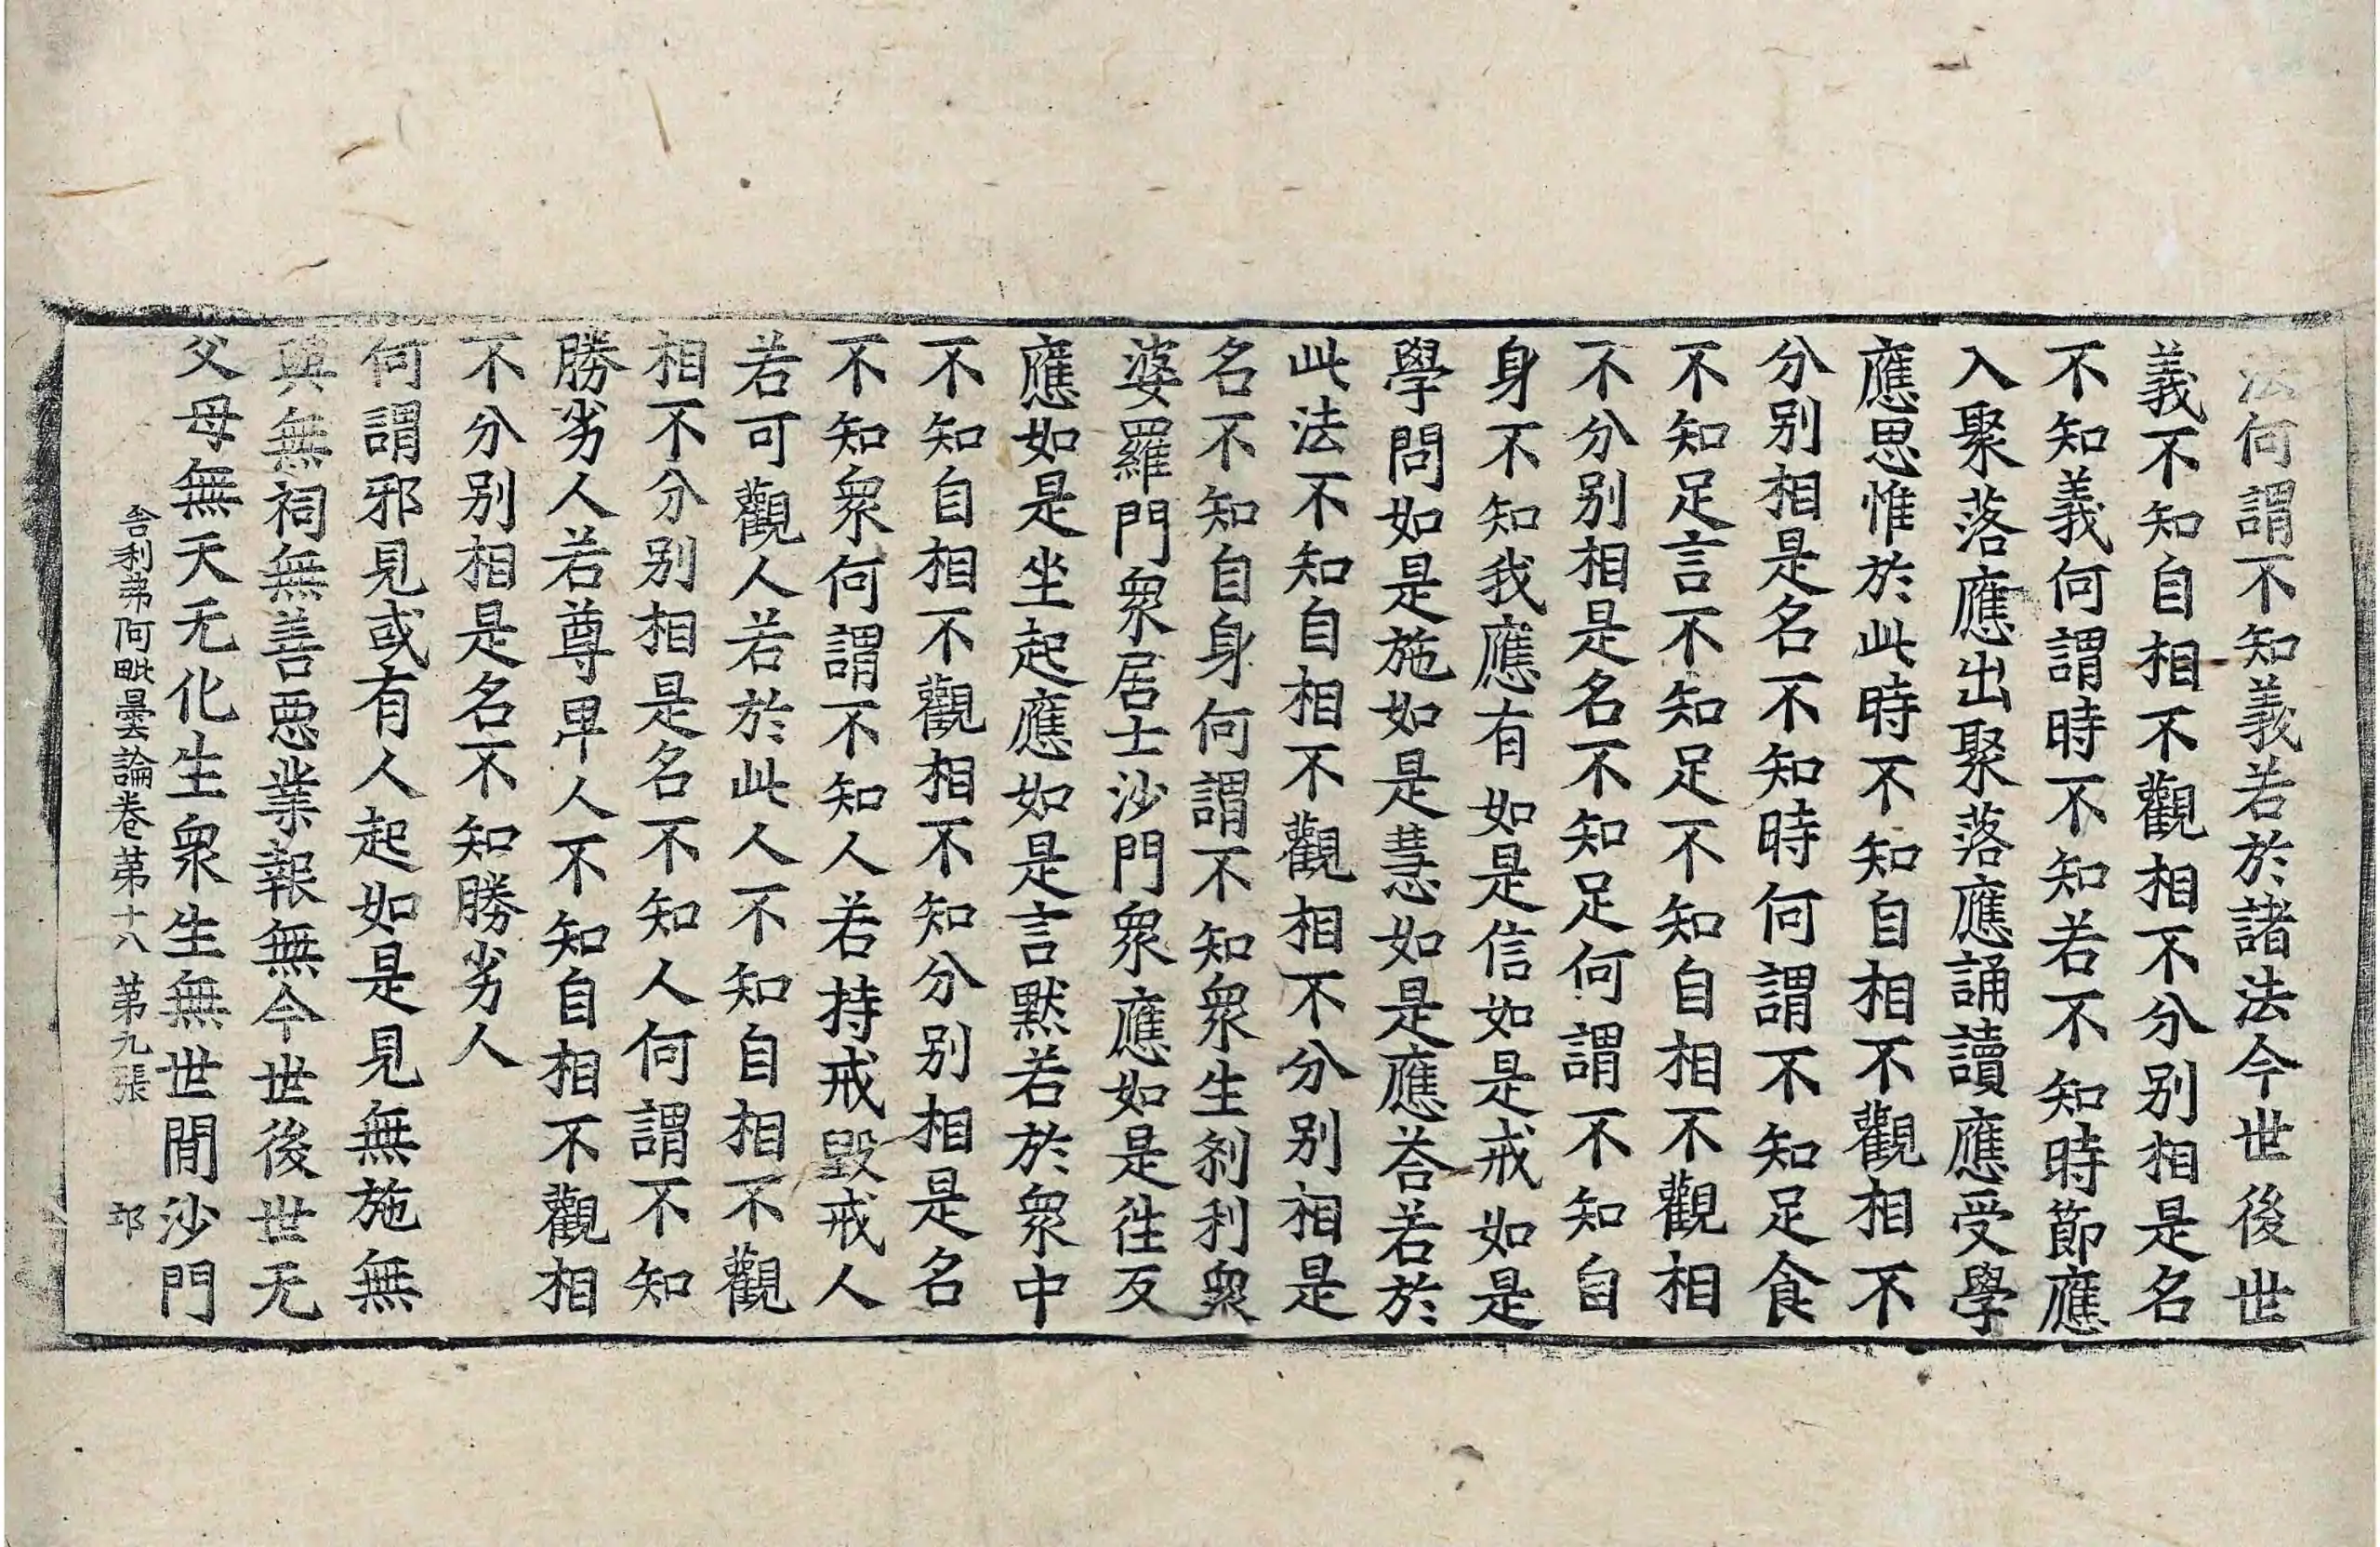 法何謂不知義若於諸法今世後世
義不知自相不觀相不分别相是名
不知義何謂時不知若不知時節應
入聚落應出聚落應誦讀應受學
應思惟於此時不知自相不觀相不
分别相是名不知時何謂不知足食
不知足言不知足不知自相不觀相
不分别相是名不知足何謂不知自
身不知我應有如是信如是戒如是
學問如是施如是慧如是應荅若於
此法不知自相不觀相不分别相是
名不知自身何謂不知衆生刹利衆
婆羅門衆居士沙門衆應如是往反
應如是坐起應如是言黙若於衆中
不知自相不觀相不知分别相是名
不知衆何謂不知人若持戒毀戒人
若可觀人若於此人不知自相不觀
相不分别相是名不知人何謂不知
勝劣人若尊卑人不知自相不觀相
不分别相是名不知勝劣人
何謂邪見或有人起如是見無施無
與無祠無善惡業報無今世後世无
父母無天无化生衆生無世間沙門
舍利弗阿毗曇論卷第十八 第九張 邙